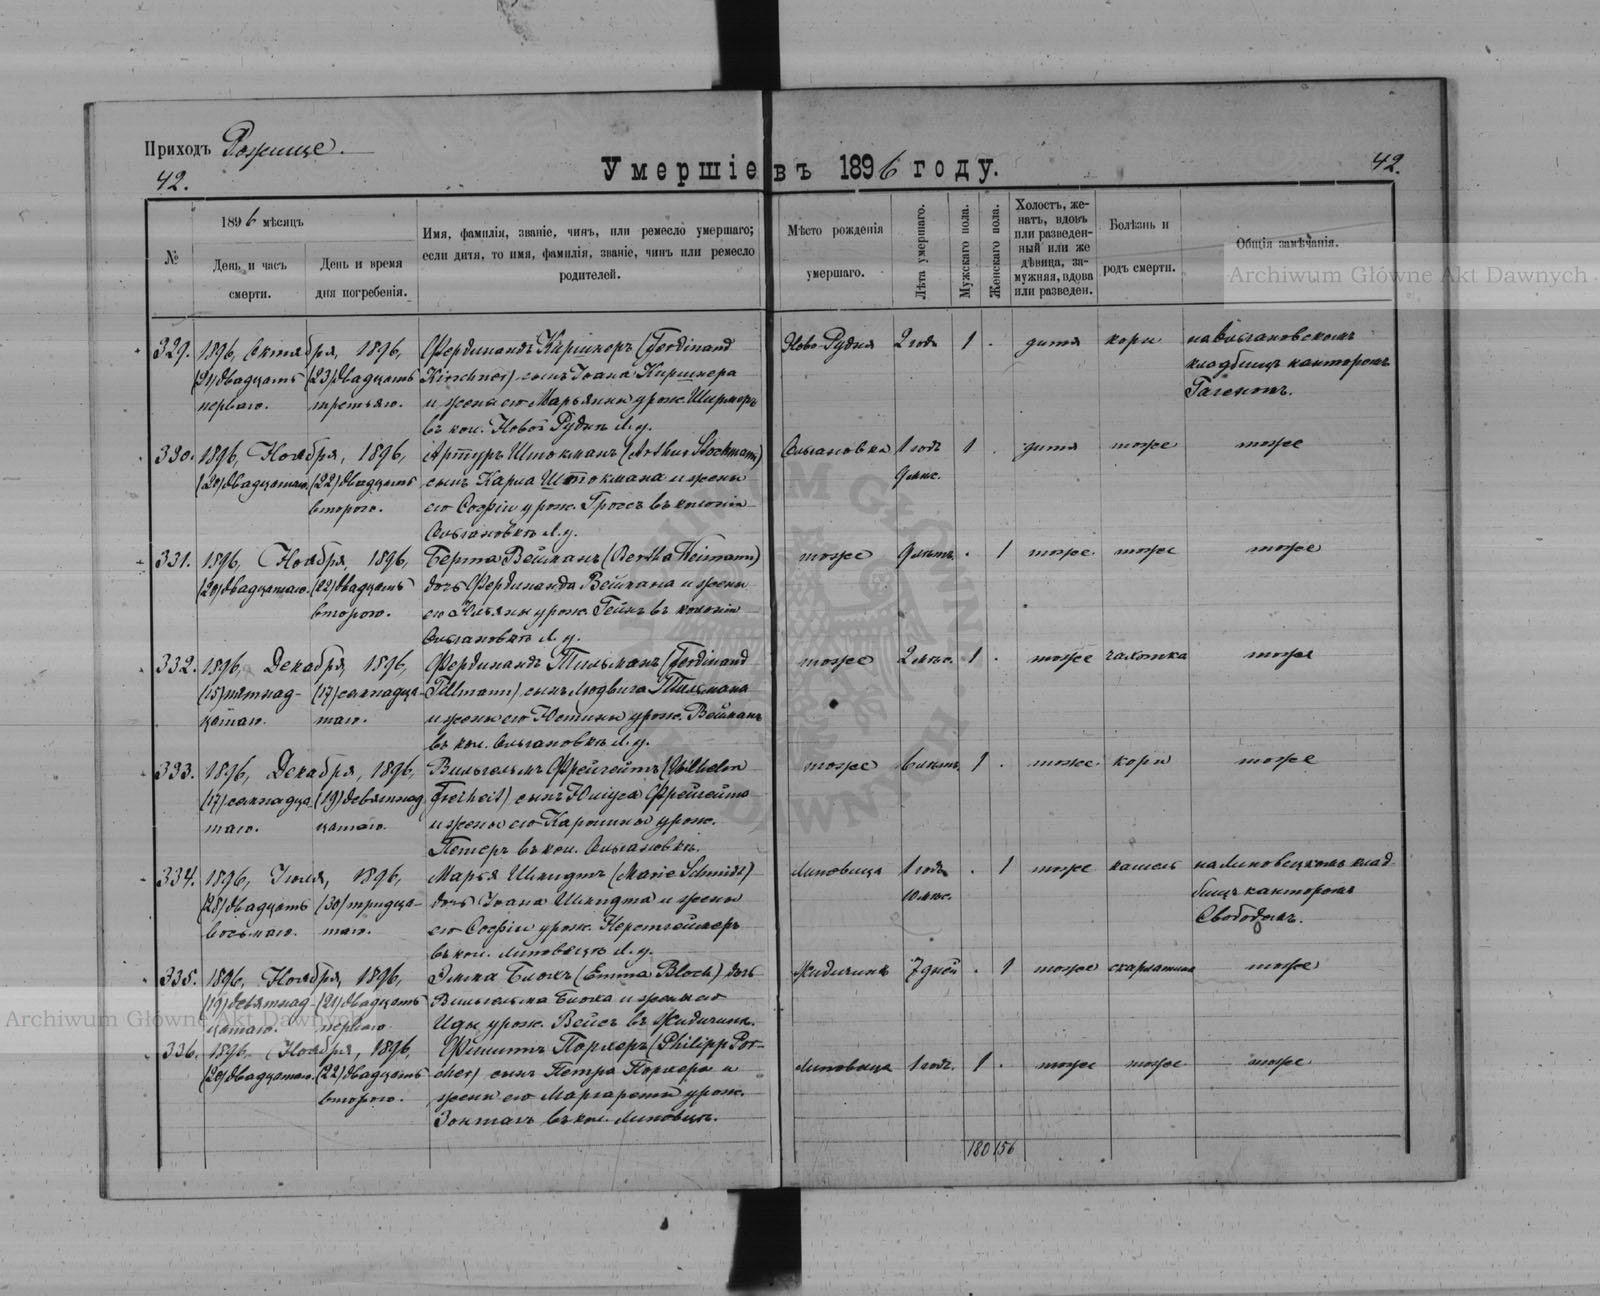 Приходъ Рожище.
42.
Умершіе въ 1896 году.
42.
№
1896 мѣсяцъ
День и часъ смерти.
День и время дня погребенія.
Имя, фамилія, званіе, чинъ, или ремесло умершаго;
если дитя, то имя, фамилія, званіе, чинъ или ремесло
родителей.
Мѣсто рожденія
умершаго.
Лѣта умершаго.
Мужскаго пола.
Женскаго пола.
Холостъ, же-
натъ, вдовъ
или разведен-
ный или же
дѣвица, за-
мужняя, вдова
или разведен.
Болѣзнь и
родъ смерти.
Общія замѣчанія.
Archiwum Główne Akt Dawnych
329. 1896, Октября, 1896, Фердинандъ Киршнеръ (Ferdinand Ново-Рудня 2 года 1 . дитя кори на Ольгановскомъ
(21) двадцать (23) двадцать Kirschner) сынъ Іоана Киршнера кладбищѣ канторомъ
перваго. третьяго. и жены его Марьянны урож. Ширмеръ
въ кол. Новой Руднѣ Л. у.
330. 1896, Ноября, 1896, Артуръ Штокманъ (Arthur Stockmann) Ольгановка 1 годъ 1 . дитя тоже тоже
(20) двадцатаго. (22) двадцать сынъ Карла Штокмана и жены 9 мѣс.
втораго. его Софіи урож. Гроссъ въ колоніи
Ольгановкѣ Л. у.
331. 1896, Ноября, 1896, Берта Вейманъ (Bertha Weimann) тоже 9 лѣтъ . 1 тоже тоже тоже
(20) двадцатаго. (22) двадцать дочь Фердинанда Веймана и жены
втораго. его Юльяны урож. Гейнъ въ колоніи
Ольгановкѣ Л. у.
332. 1896, Декабря, 1896, Фердинандъ Тильманъ (Ferdinand тоже 2 мѣс. 1 . тоже чахотка тоже
(15) пятнад- (17) семнадца- Tillmann) сынъ Людвига Тильмана
цатаго. таго. и жены его Юстины урож. Вейманъ
въ кол. Ольгановкѣ Л. у.
333. 1896, Декабря, 1896, Вильгельмъ Фрейгейтъ (Wilhelm тоже 6 лѣтъ 1 . тоже кори тоже
(17) семнадца (19) девятнад Freiheit) сынъ Юліуса Фрейгейта
таго. цатаго. и жены его Каролины урож.
Петеръ въ кол. Ольгановкѣ.
334. 1896, Іюля, 1896, Марья Шмидтъ (Marie Schmidt) Липовица 1 годъ . 1 тоже кашель на Липовецкомъ клад-
(28) двадцать (30) тридца- дочь Іоана Шмидта и жены 10 мѣс. бищѣ канторомъ
восьмаго. таго. его Софіи урож. Свободомъ.
въ кол. Липовецѣ Л. у.
335. 1896, Ноября, 1896, Эмма Блохъ (Emma Bloch) дочь Жидичинъ 7 дней . 1 тоже скарлатина тоже
(19) девятнад- (21) двадцать Вильгельма Блоха и жены его
цатаго. перваго. Иды урож. Вейсъ въ Жидичинѣ.
Archiwum Główne Akt Dawnych
336. 1896, Ноября, 1896, Филиппъ Порхеръ (Philipp Por- Липовица 1 годъ. 1 . тоже тоже тоже
(20) двадцатаго. (22) двадцать cher) сынъ Петра Порхера и
втораго. жены его Маргареты урож.
Зонтагъ въ кол. Липовцѣ.
180 156